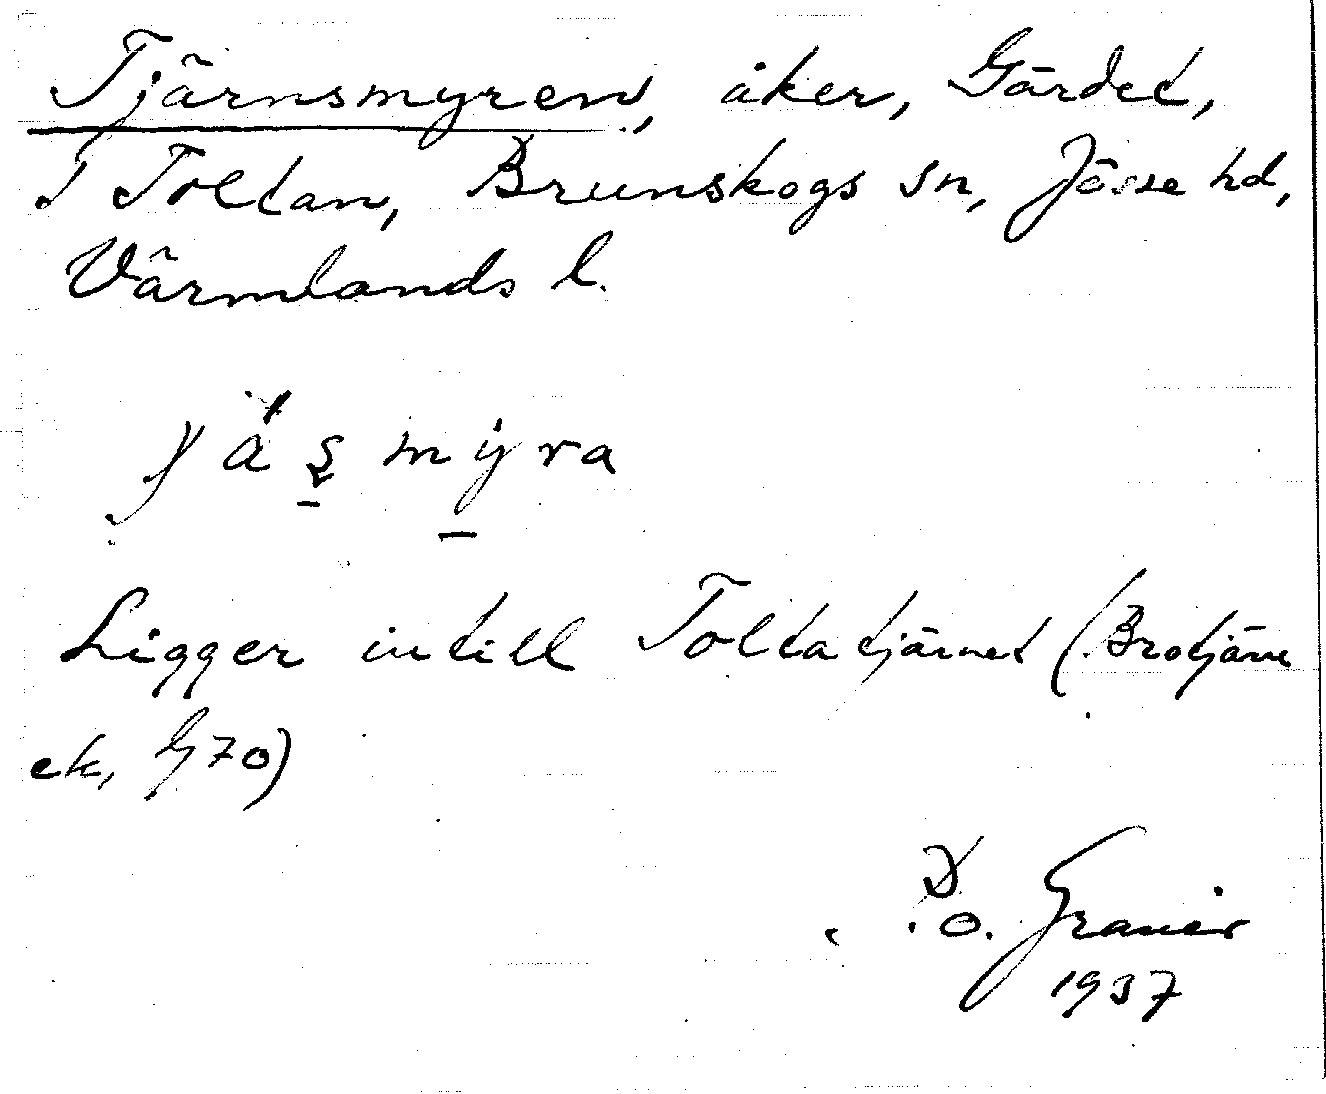 Tjärnsmyren, åker, Gärdet,
I Toltan, Brunskogs sn, Jösse hd,
Värmlands l.
myra
Ligger intill Toltatjärnet (Brotjärn
ek, G70)
P.O. Graner
1937